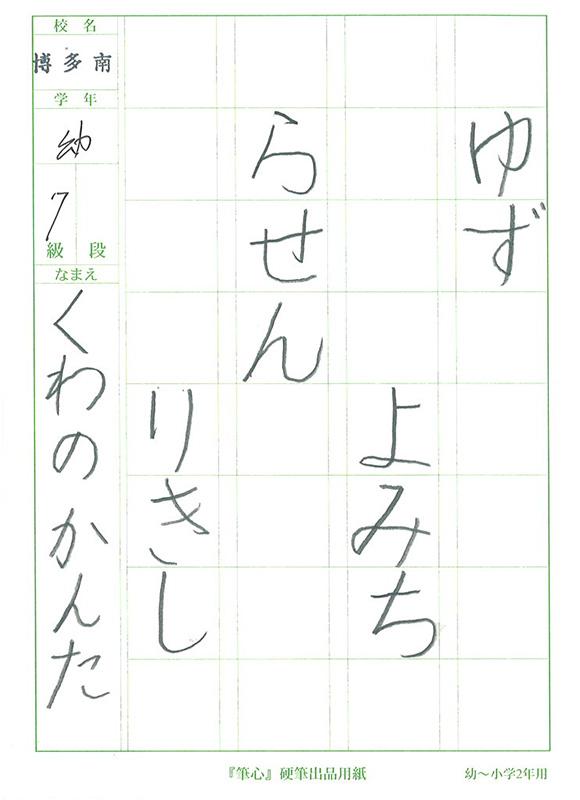 ゆず
よみち
らせん
りきし
校名
博多南
学年
幼
7
級 段
なまえ
くわのかんた
『筆心』硬筆出品用紙
幼～小学2年用